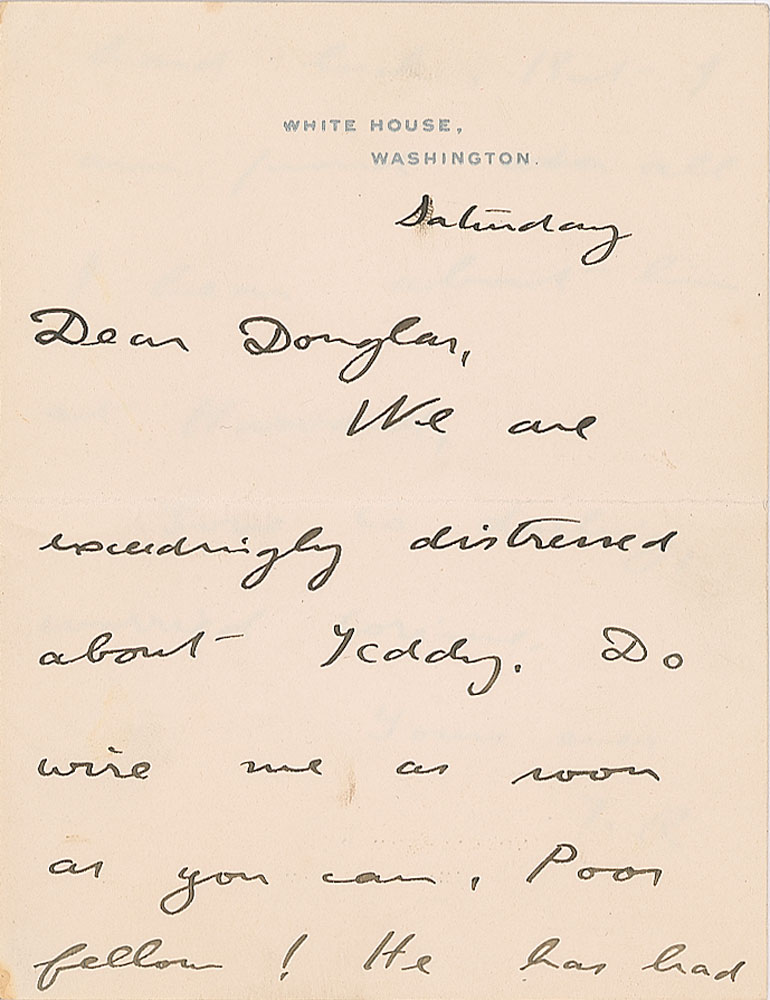 WHITE HOUSE,
WASHINGTON.
Saturday
Dear Douglas,
We are
exceedingly distressed
about Teddy. Do
wire me as soon
as you can. Poor
fellow! He has had